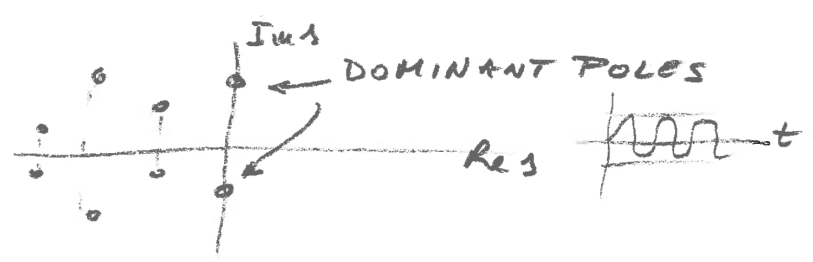 Im s
DOMINANT POLES
t
Re s